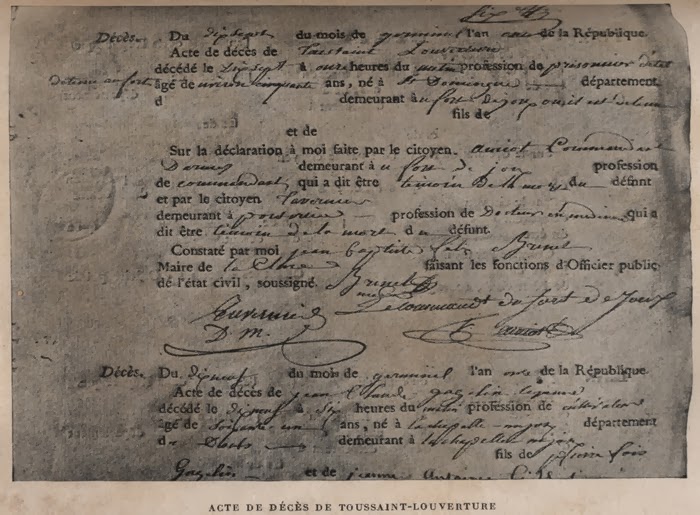 Décès. Du dixsept du mois de germinal l'an onze de la République.
Acte de décès de Toussaint Louverture
décédé le dixsept à onze heures du matin profession de prisonnier d'état
detenu au fort âgé de environ cinquante ans, né à St Domingue département
d demeurant à u fort de joux ou il est detenu
fils de
et de
Sur la déclaration à moi faite par le citoyen amiot Commandant
Darmes demeurant à u fort de jou profession
de commandant qui a dit être temoin de la mort du défunt
et par le citoyen tavernier
demeurant à pontarlier profession de Docteur en medecine qui a
dit être témoin de la mort du défunt.
Constaté par moi jean baptiste felix Brenet
Maire de la Cluse faisant les fonctions d'Officier public
de l'état civil, soussigné. Brenet
Le Commandant du fort de Joux
Tavernier
D. M. amiot
Décès. Du dixneuf du mois de germinal l'an onze de la République.
Acte de décès de jean Claude
décédé le dixneuf à six heures du matin profession de cultivateur
âgé de soixante un ans, né à la chapelle département
du Doubs demeurant à la chapelle
fils de pierre fois
et de jeanne Antoine
ACTE DE DÉCÈS DE TOUSSAINT-LOUVERTURE